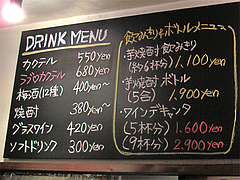 DRINK MENU
カクテル 550yen
ラジカクテル 680yen
梅酒(12種) 400yen〜
焼酎 380yen〜
グラスワイン 420yen
ソフトドリンク 300yen
飲みきり&ボトルメニュー
・芋焼酎飲みきり
(約6杯分) 1,100yen
・芋焼酎ボトル
(5合) 1,900yen
・ワインデキャンタ
(5杯分) 1.600yen
(9杯分) 2,900yen